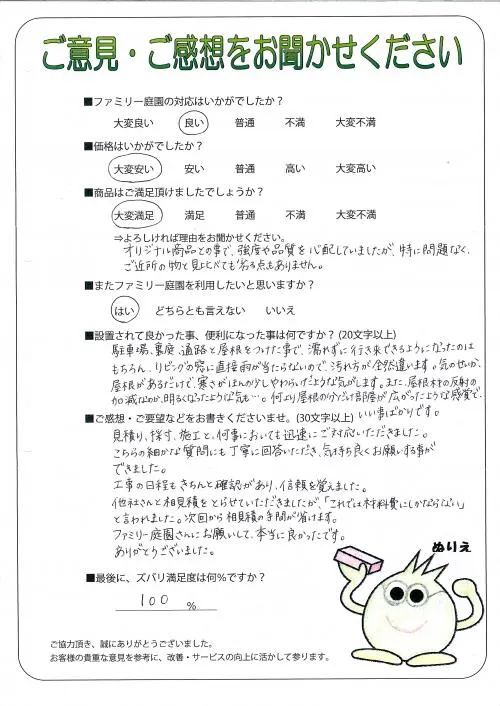 ご意見・ご感想をお聞かせください
■ファミリー庭園の対応はいかがでしたか？
大変良い 良い 普通 不満 大変不満
■価格はいかがでしたか？
大変安い 安い 普通 高い 大変高い
■商品はご満足頂けましたでしょうか？
大変満足 満足 普通 不満 大変不満
⇒よろしければ理由をお聞かせください。
オリジナル商品との事で、強度や品質を心配していましたが、特に問題なく、
ご近所の物と見比べても劣る点もありません。
■またファミリー庭園を利用したいと思いますか？
はい どちらとも言えない いいえ
■設置されて良かった事、便利になった事は何ですか？(20文字以上)
駐車場、裏庭、通路と屋根をつけた事で、濡れずに行き来できるようになったのは
もちろん、リビングの窓に直接雨が当たらないので、汚れ方が全然違います。気のせいか、
屋根があるだけで、寒さがほんの少しやわらいだような気がします。また、屋根材の反射の
加減なのか、明るくなったような気も…。何より屋根の分だけ部屋が広がったような感覚で、
いい事ばかりです。
■ご感想・ご要望などをお書きくださいませ。(30文字以上)
見積り、採寸、施工と、何事においても迅速にご対応いただきました。
こちらの細かな質問にも丁寧に回答いただき、気持ち良くお願いする事が
できました。
工事の日程もきちんと確認があり、信頼を覚えました。
他社さんと相見積をとらせていただきましたが、「これでは材料費にしかならない」
と言われました。次回から相見積の手間が省けます。
ファミリー庭園さんにお願いして、本当に良かったです。
ありがとうございました。
ぬりえ
■最後に、ズバリ満足度は何％ですか？
100 ％
ご協力頂き、誠にありがとうございました。
お客様の貴重な意見を参考に、改善・サービスの向上に活かして参ります。